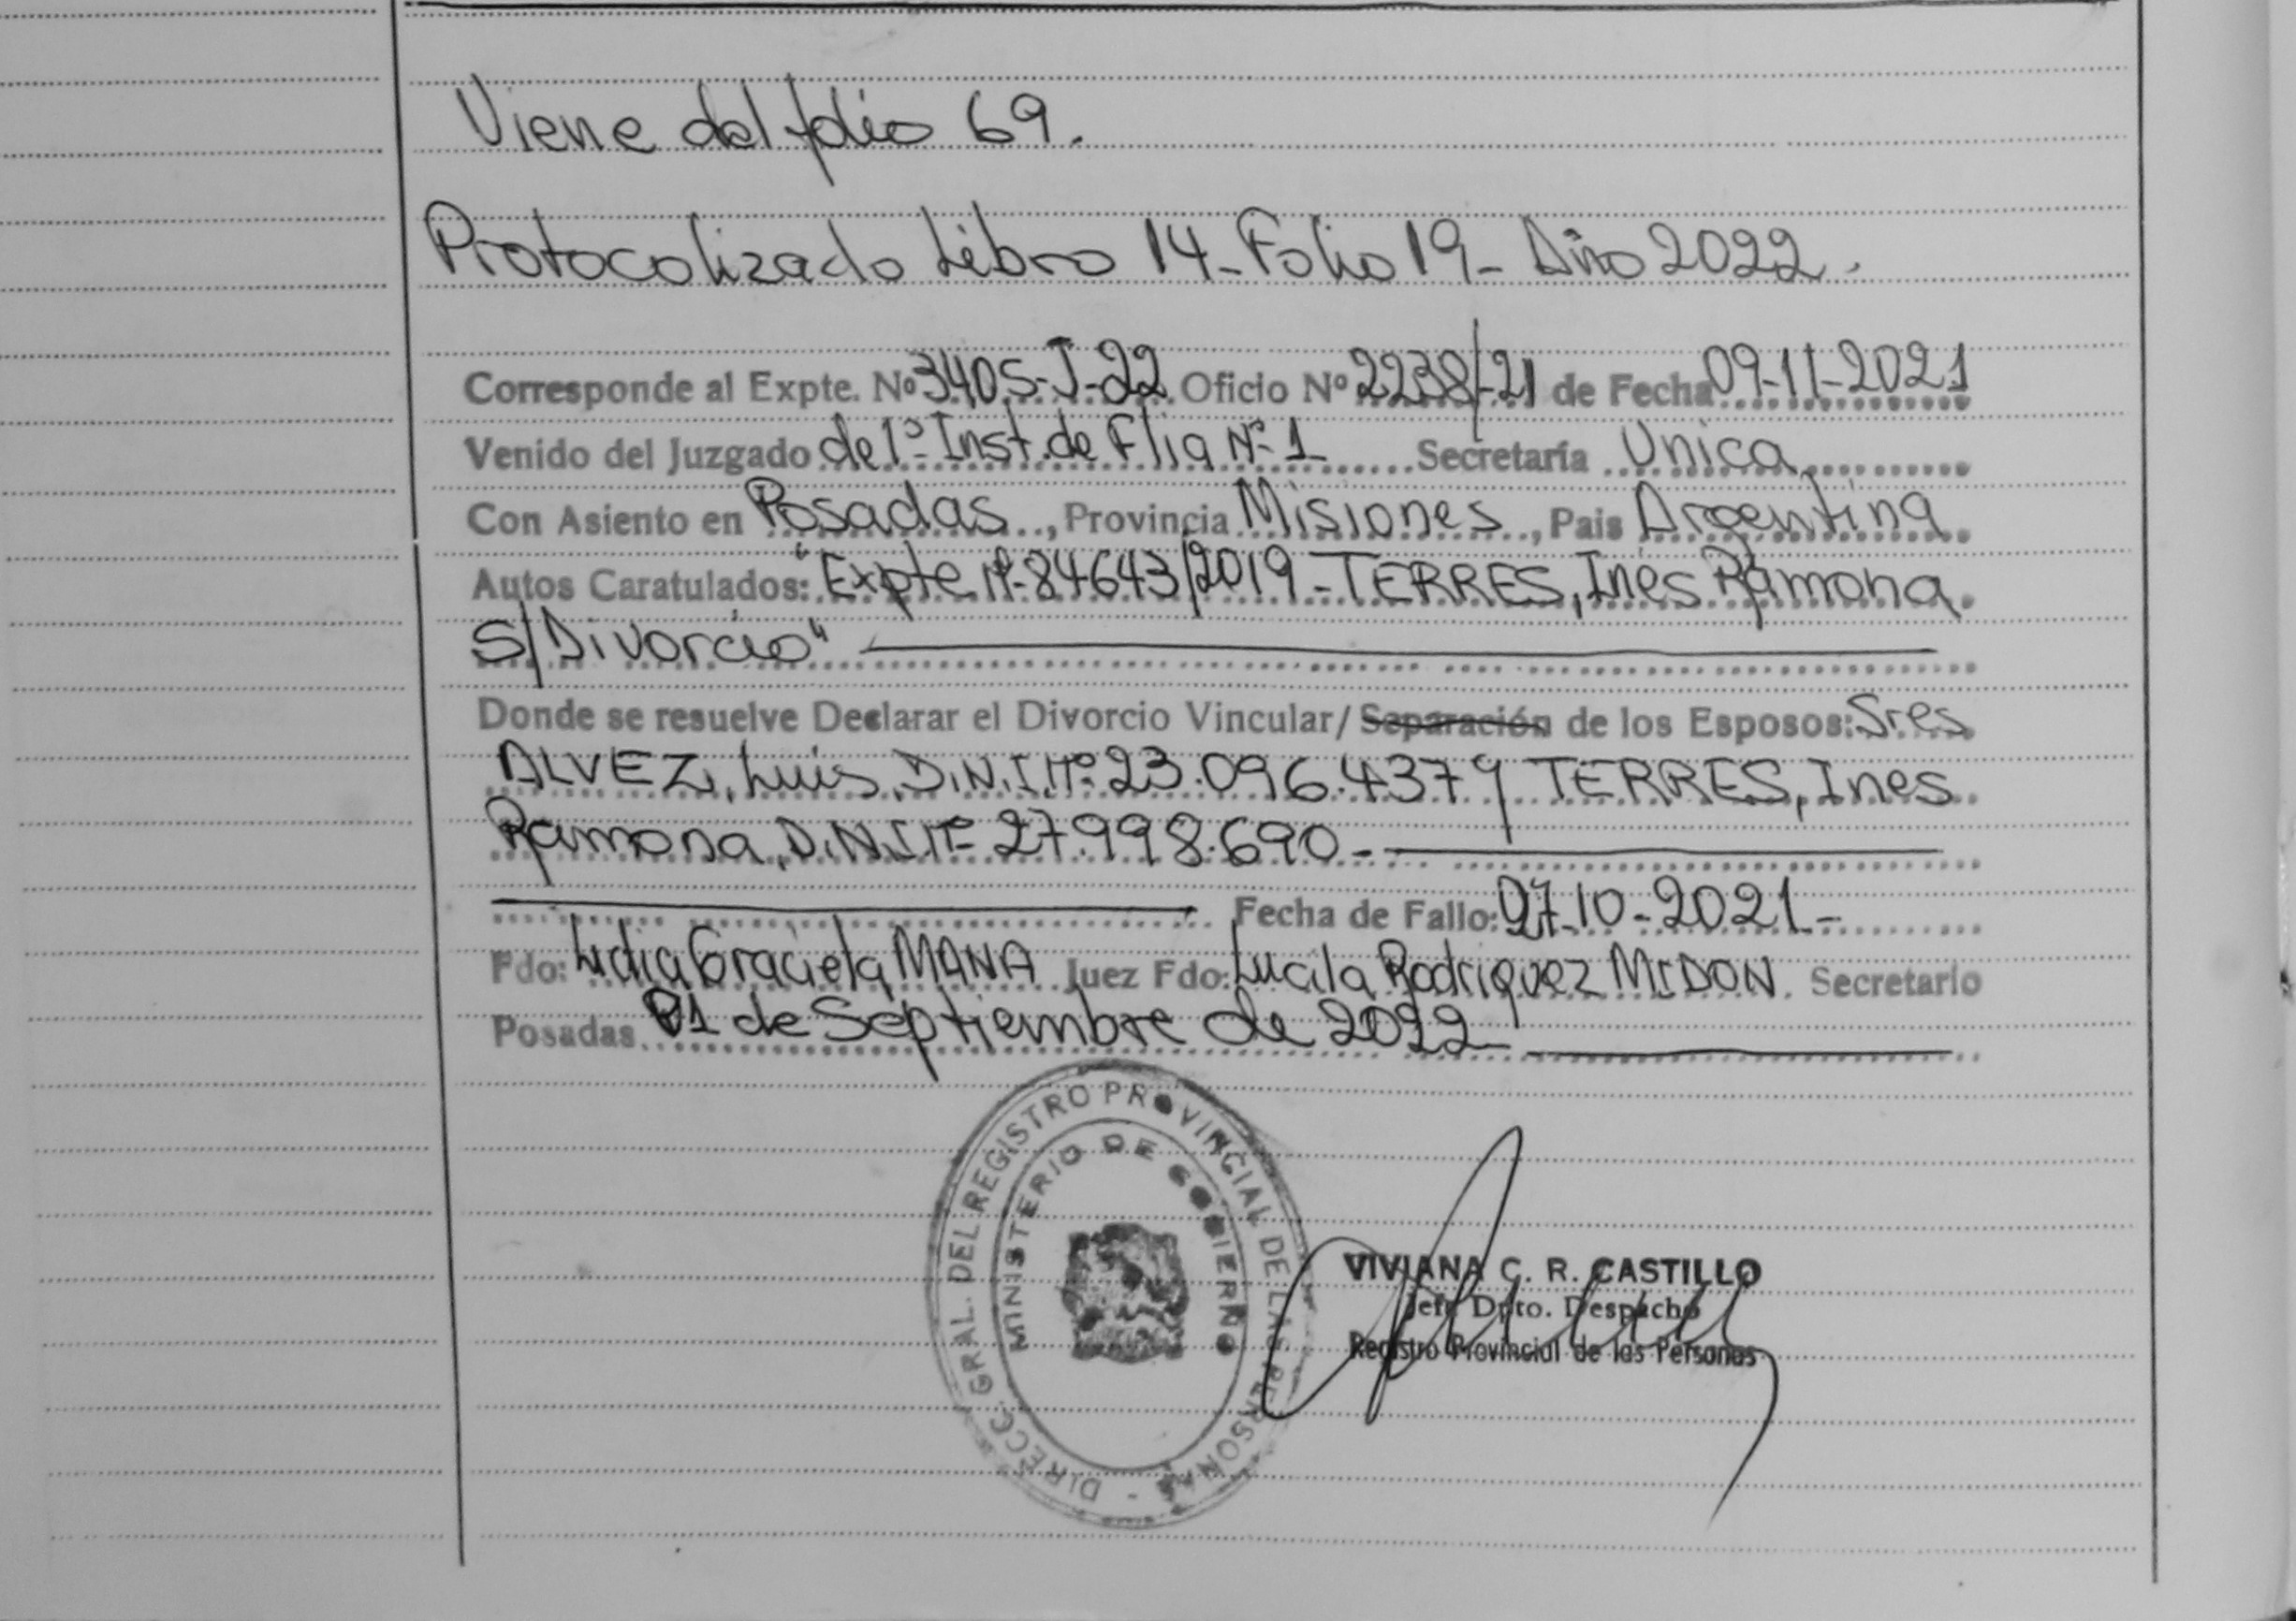 Viene del folio 69.
Protocolizado Libro 14 - Folio 19 - Año 2022.
Corresponde al Expte. Nº 3405-J-22 Oficio Nº 2238/21 de Fecha 09-11-2021
Venido del Juzgado de 1º Inst. de Flia Nº 1 Secretaría Unica
Con Asiento en Posadas, Provincia Misiones, Pais Argentina
Autos Caratulados: "Expte Nº 84643/2019 - TERRES, Ines Ramona
S/Divorcio"
Donde se resuelve Declarar el Divorcio Vincular/Separación de los Esposos: Sres
ALVEZ, Luis, D.N.I. Nº 23.096.437 y TERRES, Ines
Ramona, D.N.I. Nº 27.998.690 -
Fecha de Fallo: 27-10-2021 -
Fdo: Lidia Graciela MANA Juez Fdo: Lucila Rodriguez MIDON Secretario
Posadas 01 de Septiembre de 2022
DIRECC. GRAL. DEL REGISTRO PROVINCIAL DE LAS PERSONAS -
MINISTERIO DE GOBIERNO
VIVIANA C. R. CASTILLO
Jefe Dpto. Despacho
Registro Provincial de las Personas